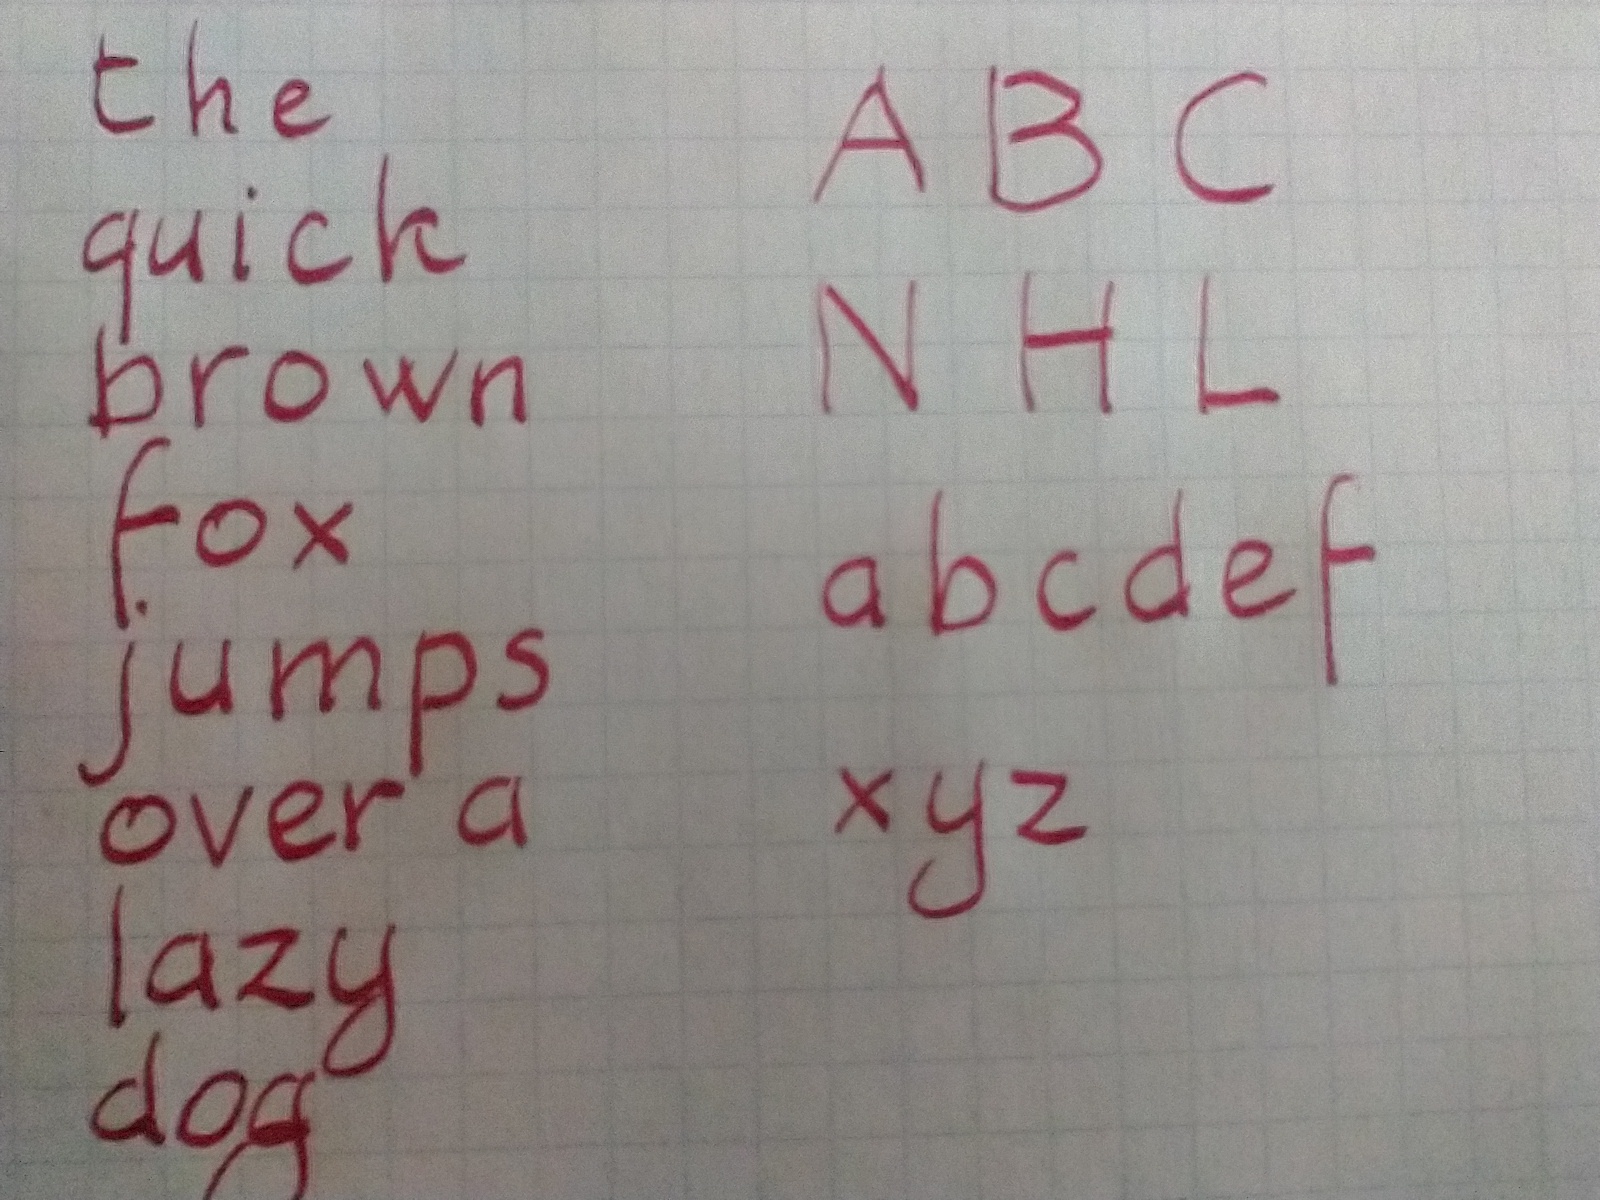 the
quick
brown
fox
jumps
over a
lazy
dog
A B C
N H L
abcdef
xyz